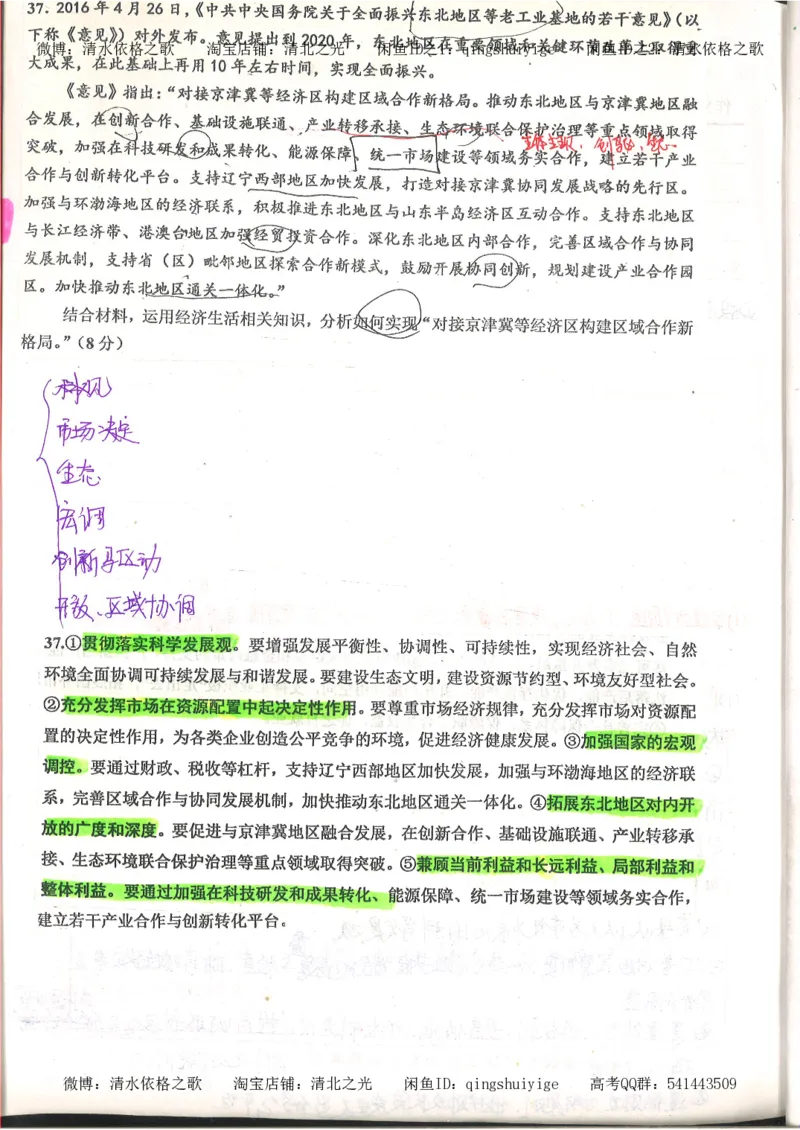 37. 2016 年 4 月 26 日，《中共中央国务院关于全面振兴东北地区等老工业基地的若干意见》（以
下称《意见》）对外发布。意见提出到 2020 年，东北地区在重要领域和关键环节改革上取得重
微博：清水依格之歌 淘宝店铺：清北之光 闲鱼ID之一：qingshuiyige 闲鱼ID之二：清水依格之歌
大成果，在此基础上再用 10 年左右时间，实现全面振兴。
《意见》指出：“对接京津冀等经济区构建区域合作新格局。推动东北地区与京津冀地区融
合发展，在创新合作、基础设施联通、产业转移承接、生态环境联合保护治理等重点领域取得
突破，加强在科技研发和成果转化、能源保障、统一市场建设等领域务实合作，建立若干产业
合作与创新转化平台。支持辽宁西部地区加快发展，打造对接京津冀协同发展战略的先行区。
加强与环渤海地区的经济联系，积极推进东北地区与山东半岛经济区互动合作。支持东北地区
与长江经济带、港澳台地区加强经贸投资合作。深化东北地区内部合作，完善区域合作与协同
发展机制，支持省（区）毗邻地区探索合作新模式，鼓励开展协同创新，规划建设产业合作园
区。加快推动东北地区通关一体化。”
结合材料，运用经济生活相关知识，分析如何实现“对接京津冀等经济区构建区域合作新
格局。”（8 分）
科观
市场决定
生态
宏调
创新驱动
开放、区域协调
37.①贯彻落实科学发展观。要增强发展平衡性、协调性、可持续性，实现经济社会、自然
环境全面协调可持续发展与和谐发展。要建设生态文明，建设资源节约型、环境友好型社会。
②充分发挥市场在资源配置中起决定性作用。要尊重市场经济规律，充分发挥市场对资源配
置的决定性作用，为各类企业创造公平竞争的环境，促进经济健康发展。③加强国家的宏观
调控。要通过财政、税收等杠杆，支持辽宁西部地区加快发展，加强与环渤海地区的经济联
系，完善区域合作与协同发展机制，加快推动东北地区通关一体化。④拓展东北地区对内开
放的广度和深度。要促进与京津冀地区融合发展，在创新合作、基础设施联通、产业转移承
接、生态环境联合保护治理等重点领域取得突破。⑤兼顾当前利益和长远利益、局部利益和
整体利益。要通过加强在科技研发和成果转化、能源保障、统一市场建设等领域务实合作，
建立若干产业合作与创新转化平台。
微博：清水依格之歌 淘宝店铺：清北之光 闲鱼ID：qingshuiyige 高考QQ群：541443509